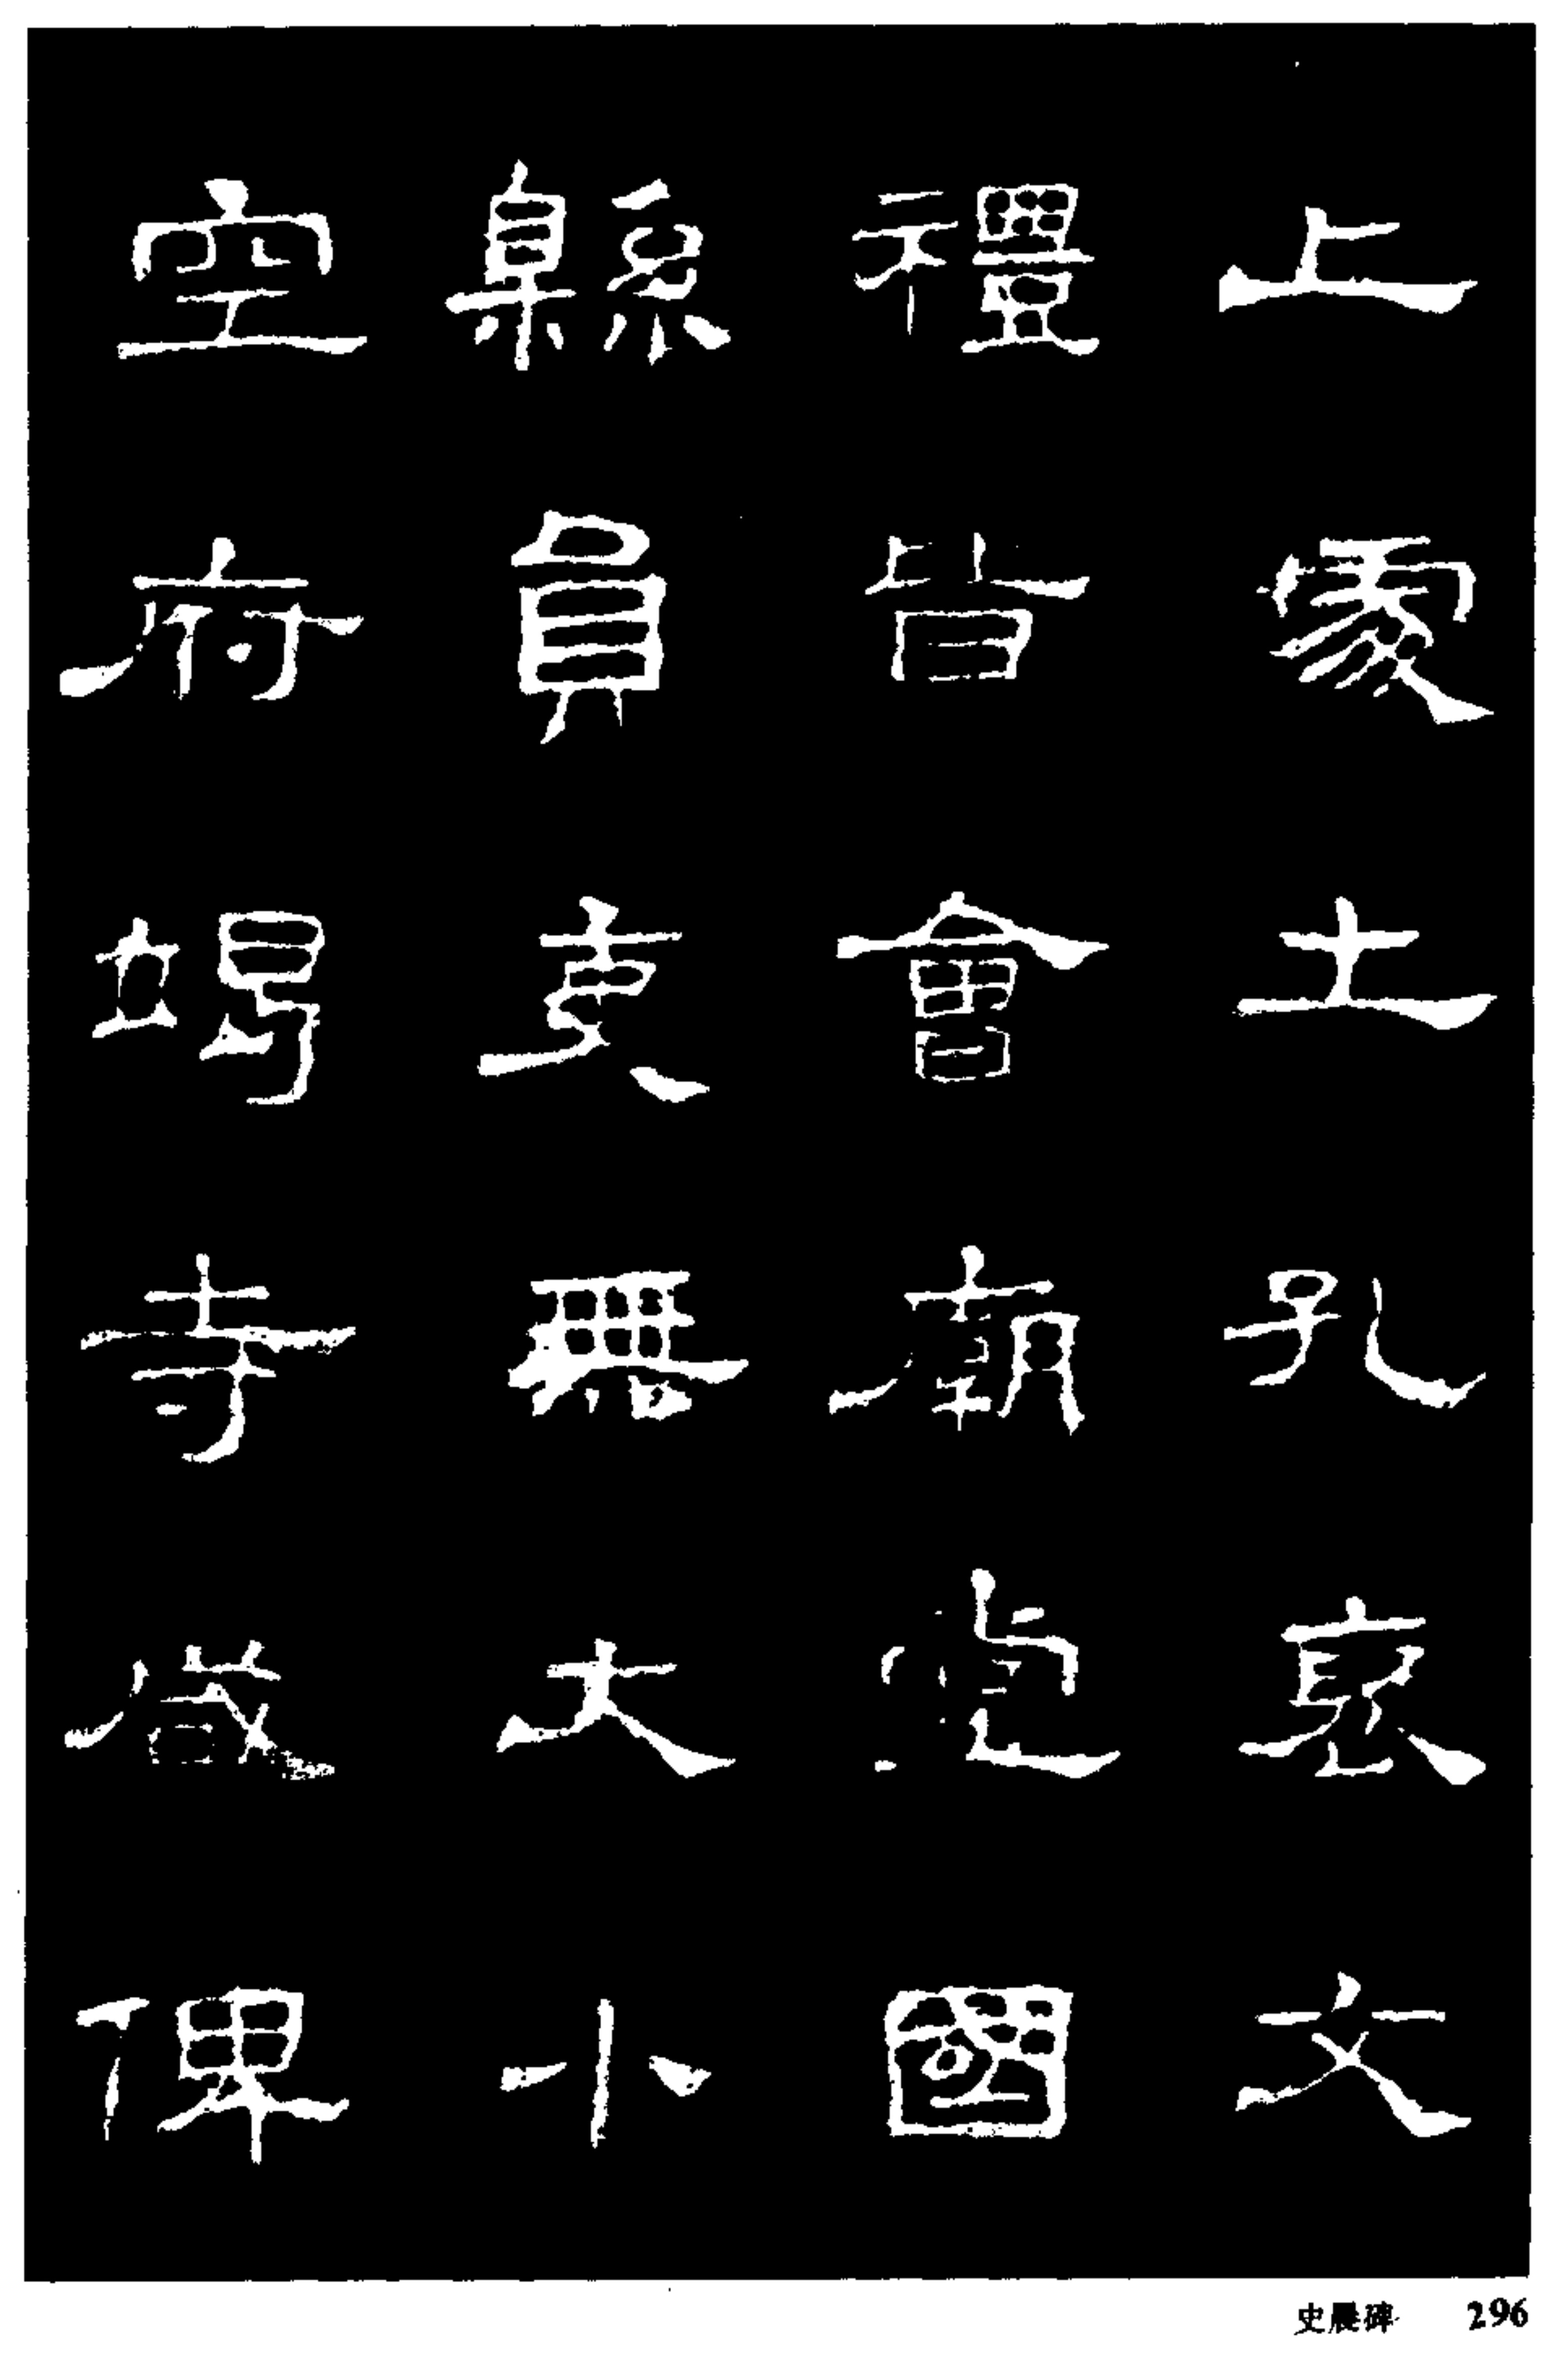 上處士孔褒文
禮皆會廟堂國
縣員吏無大小
空府竭寺咸俾
史晨碑 296